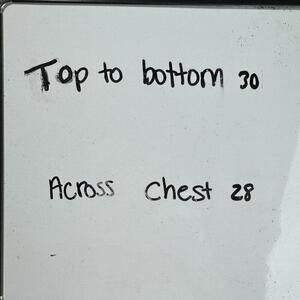 Top to bottom 30
Across Chest 28